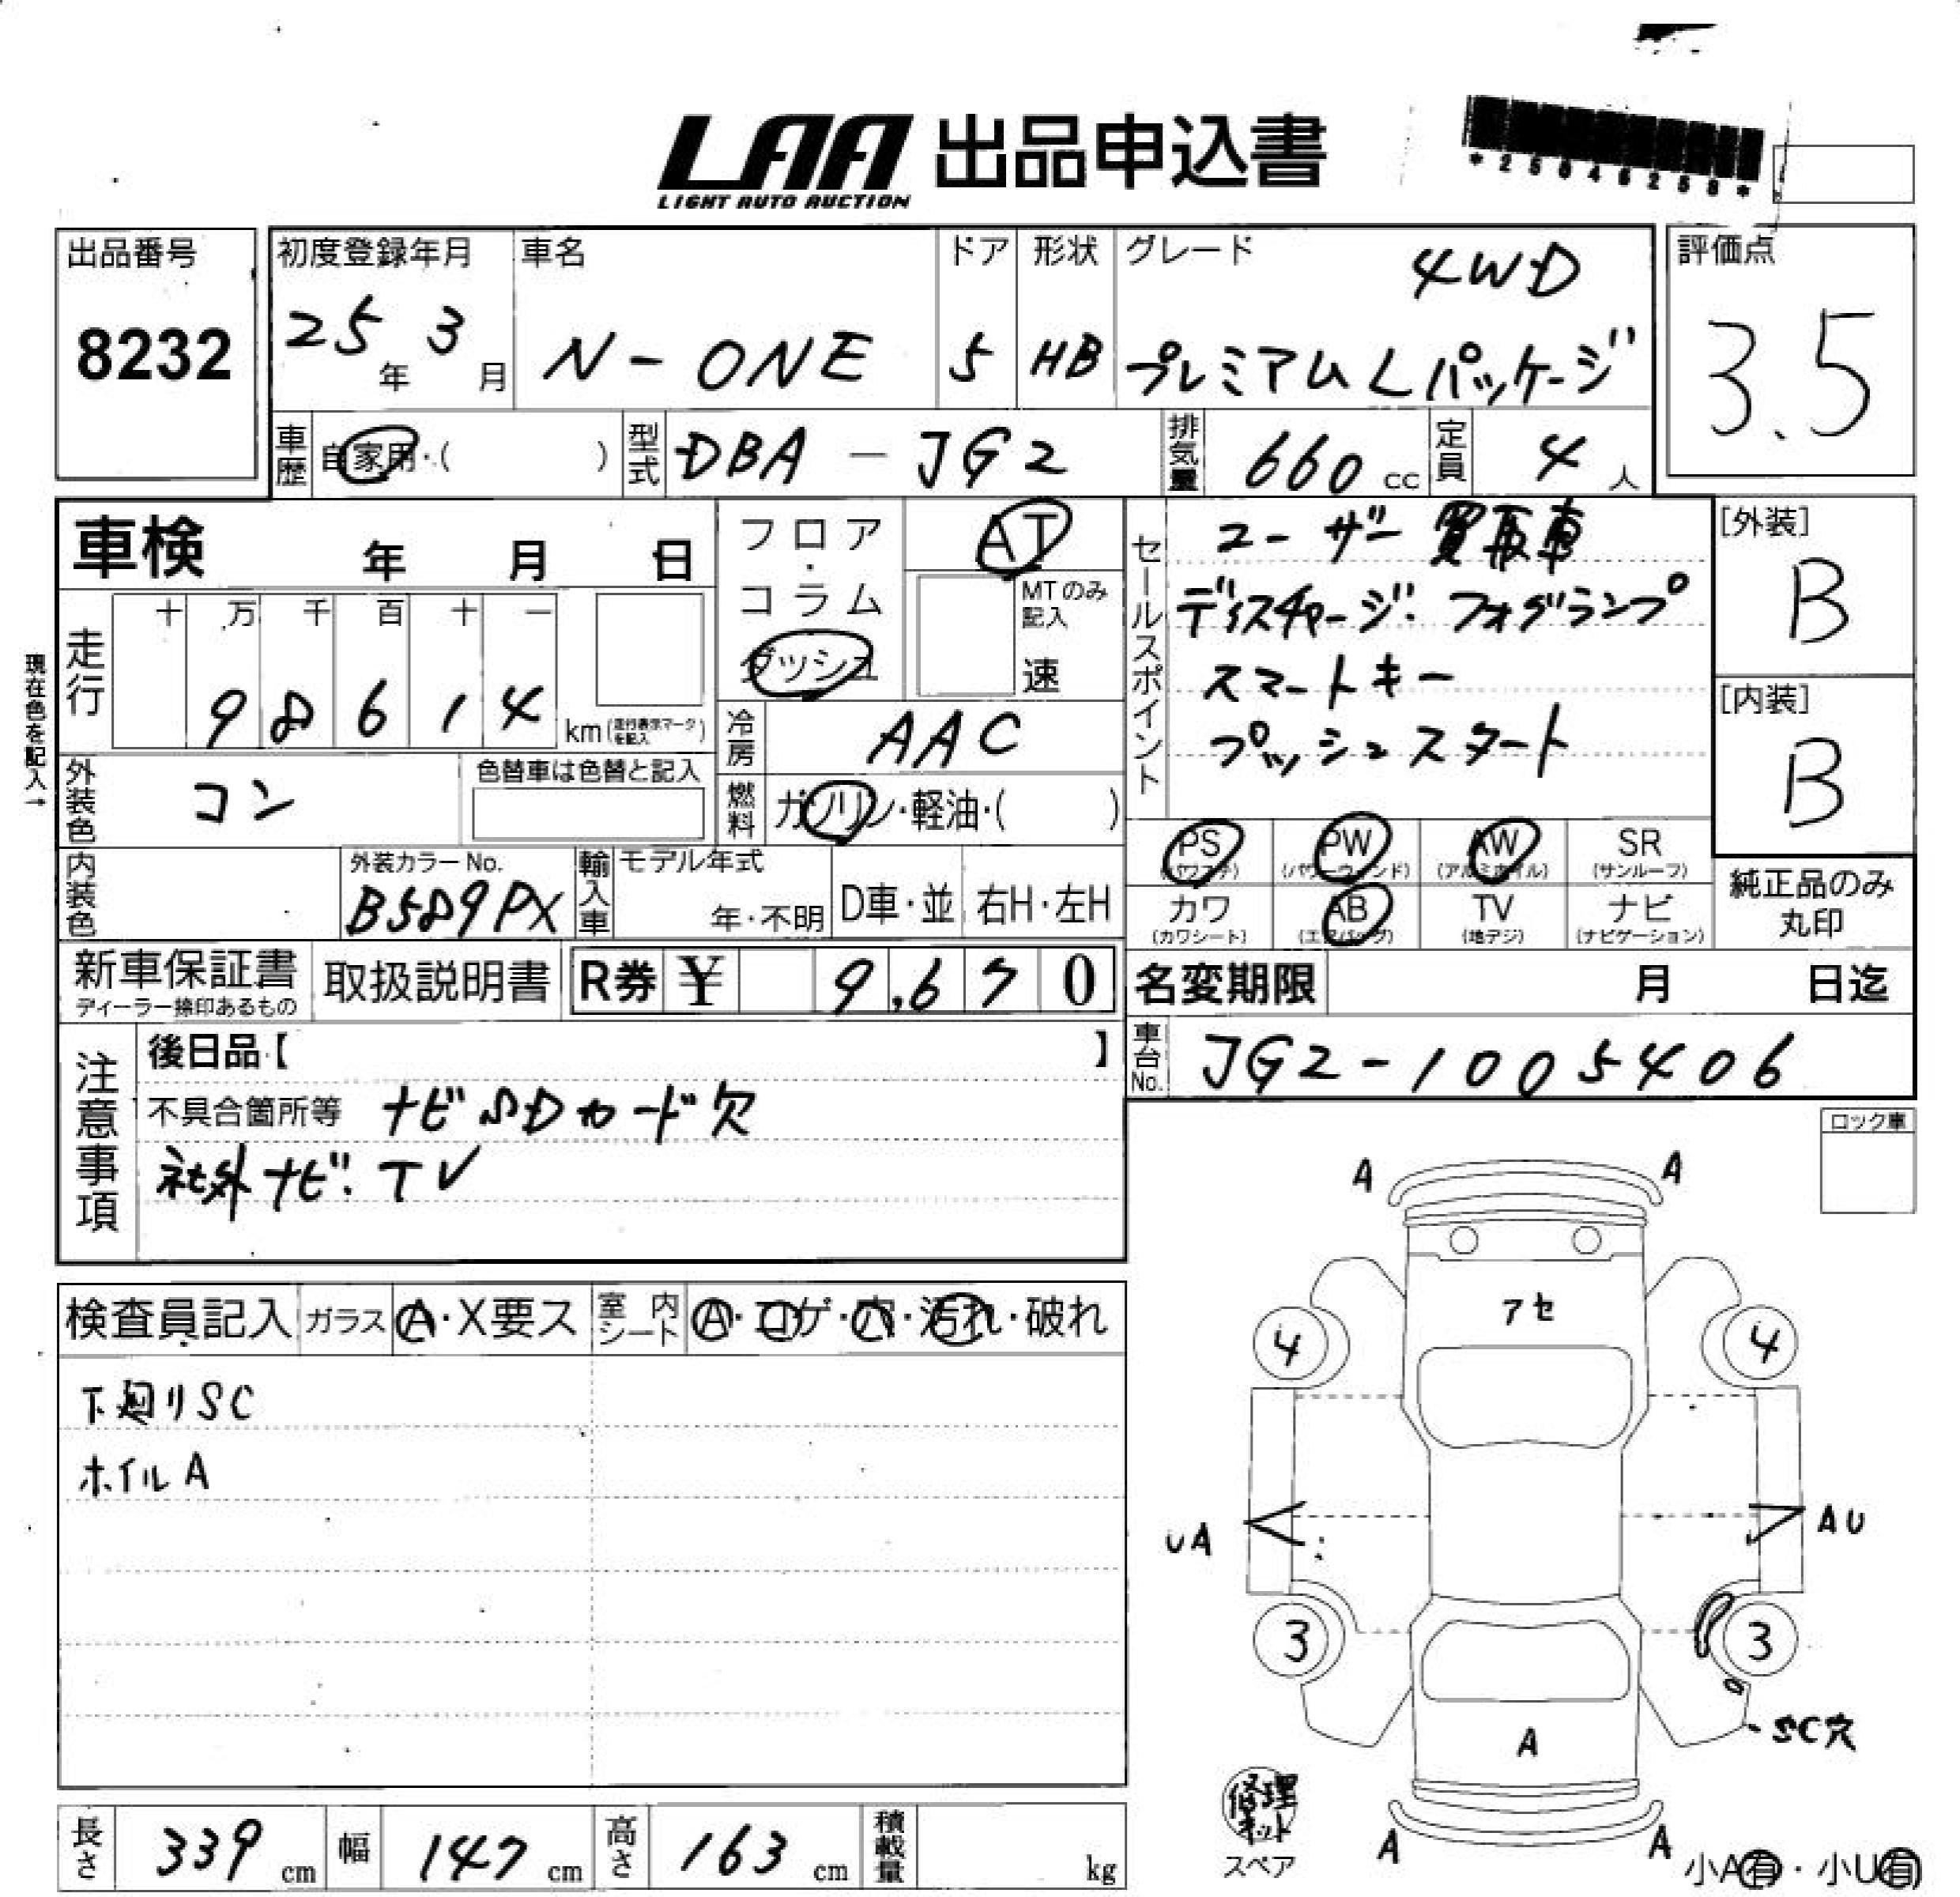 LAA 出品申込書
LIGHT AUTO AUCTION
*25046258*
出品番号
8232
初度登録年月
25年 3月
車名
N-ONE
ドア
5
形状
HB
グレード
4WD
プレミアムLパッケージ
評価点
3.5
車歴
自家用・( )
型式
DBA-JG2
排気量
660cc
定員
4人
車検 年 月 日
フロア・コラム
ダッシュ
AT
MTのみ記入
速
セールスポイント
ユーザー買取車
ディスチャージ・フォグランプ
スマートキー
プッシュスタート
[外装]
B
[内装]
B
現在色を記入→
走行
十 万 千 百 十 一
9 8 6 1 4
km(走行表示マークを記入)
冷房
AAC
外装色
コン
色替車は色替と記入
燃料
ガソリン・軽油・( )
PS (パワステ) PW (パワーウィンド) AW (アルミホイル) SR (サンルーフ)
カワ (カワシート) AB (エアバッグ) TV (地デジ) ナビ (ナビゲーション)
純正品のみ丸印
内装色
外装カラーNo.
B589PX
輸入車
モデル年式
年・不明
D車・並
右H・左H
新車保証書
ディーラー捺印あるもの
取扱説明書
R券 ¥ 9,670
名変期限 月 日迄
車台No.
JG2-1005406
注意事項
後日品【 】
不具合箇所等 ナビSDカード欠
社外ナビ・TV
ロック車
検査員記入
ガラス A・X要ス
室内シート A・コゲ・穴・汚れ・破れ
下廻りSC
ホイルA
A A
アセ
4 4
UA AU
3 3
SC穴
A
A A
修理キット
スペア
小A有・小U有
長さ 339cm
幅 147cm
高さ 163cm
積載量 kg